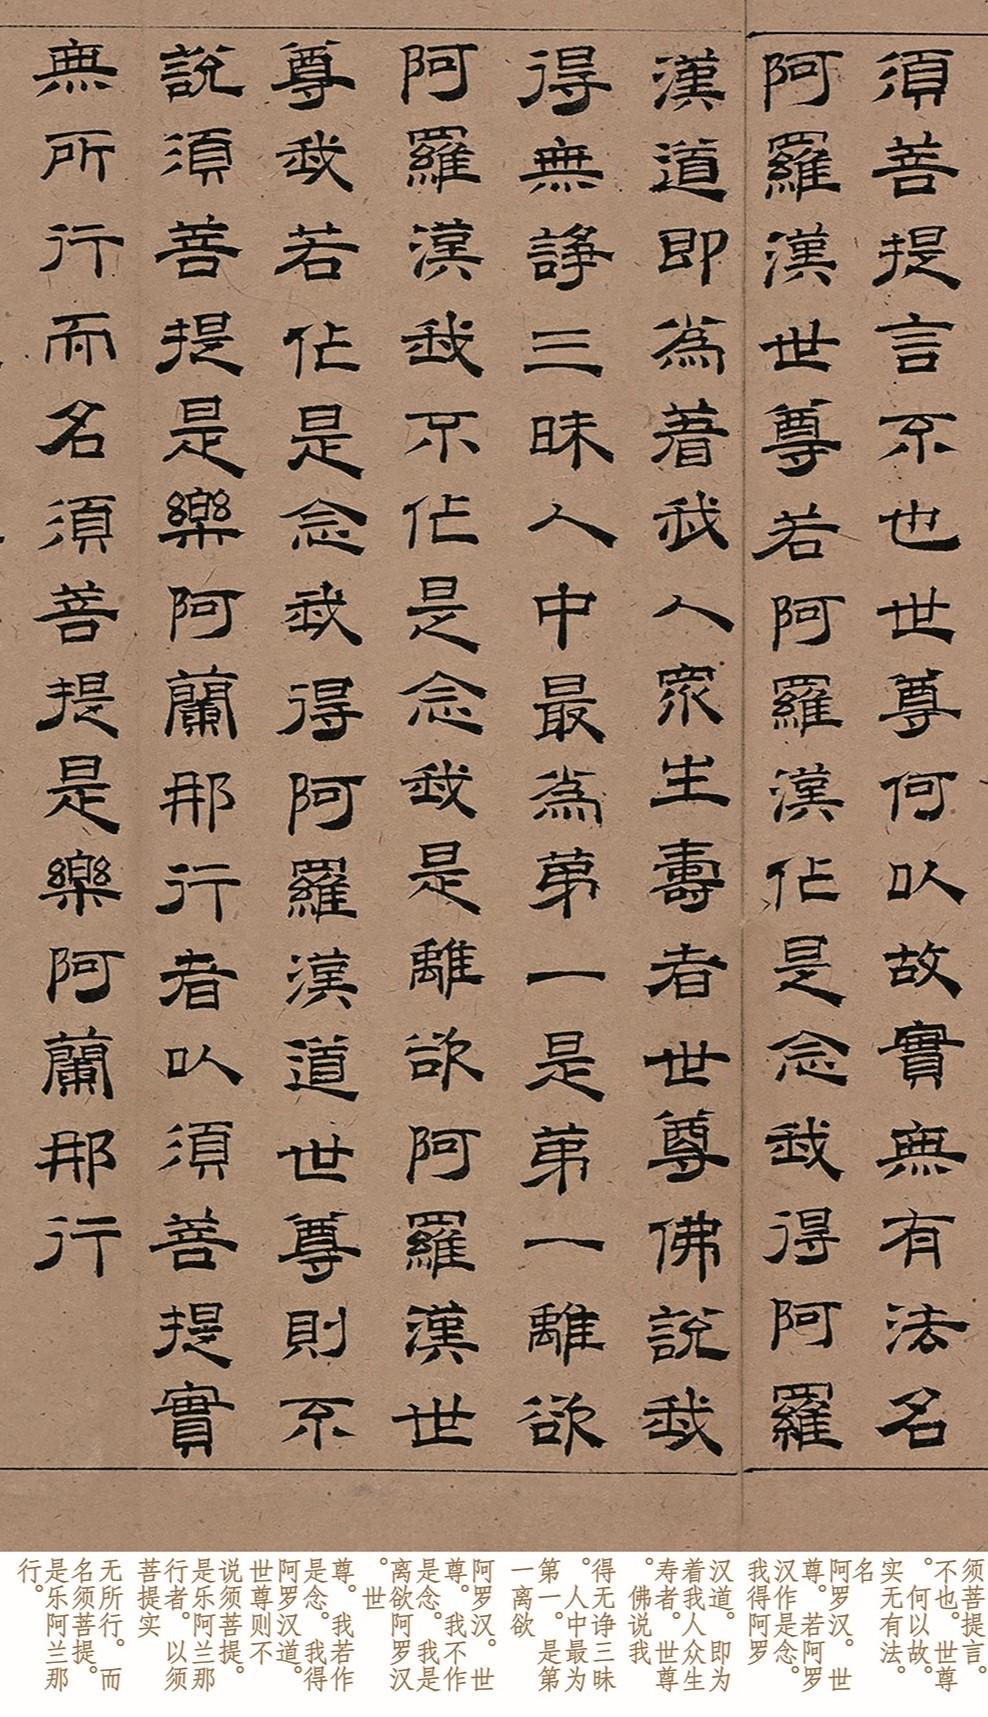 須菩提言不也世尊何以故實無有法名
阿羅漢世尊若阿羅漢作是念我得阿羅
漢道即為著我人衆生壽者世尊佛說我
得無諍三昧人中最為第一是第一離欲
阿羅漢我不作是念我是離欲阿羅漢世
尊我若作是念我得阿羅漢道世尊則不
說須菩提是樂阿蘭那行者以須菩提實
無所行而名須菩提是樂阿蘭那行
须菩提言。
不也。世尊
。何以故。
实无有法。
名
阿罗汉。世
尊。若阿罗
汉作是念。
我得阿罗
汉道。即为
着我人众生
寿者。世尊
。佛说我
得无诤三昧
。人中最为
第一。是第
一离欲
阿罗汉。世
尊。我不作
是念。我是
离欲阿罗汉
。世
尊。我若作
是念。我得
阿罗汉道。
世尊则不
说须菩提。
是乐阿兰那
行者。以须
菩提实
无所行。而
名须菩提。
是乐阿兰那
行。